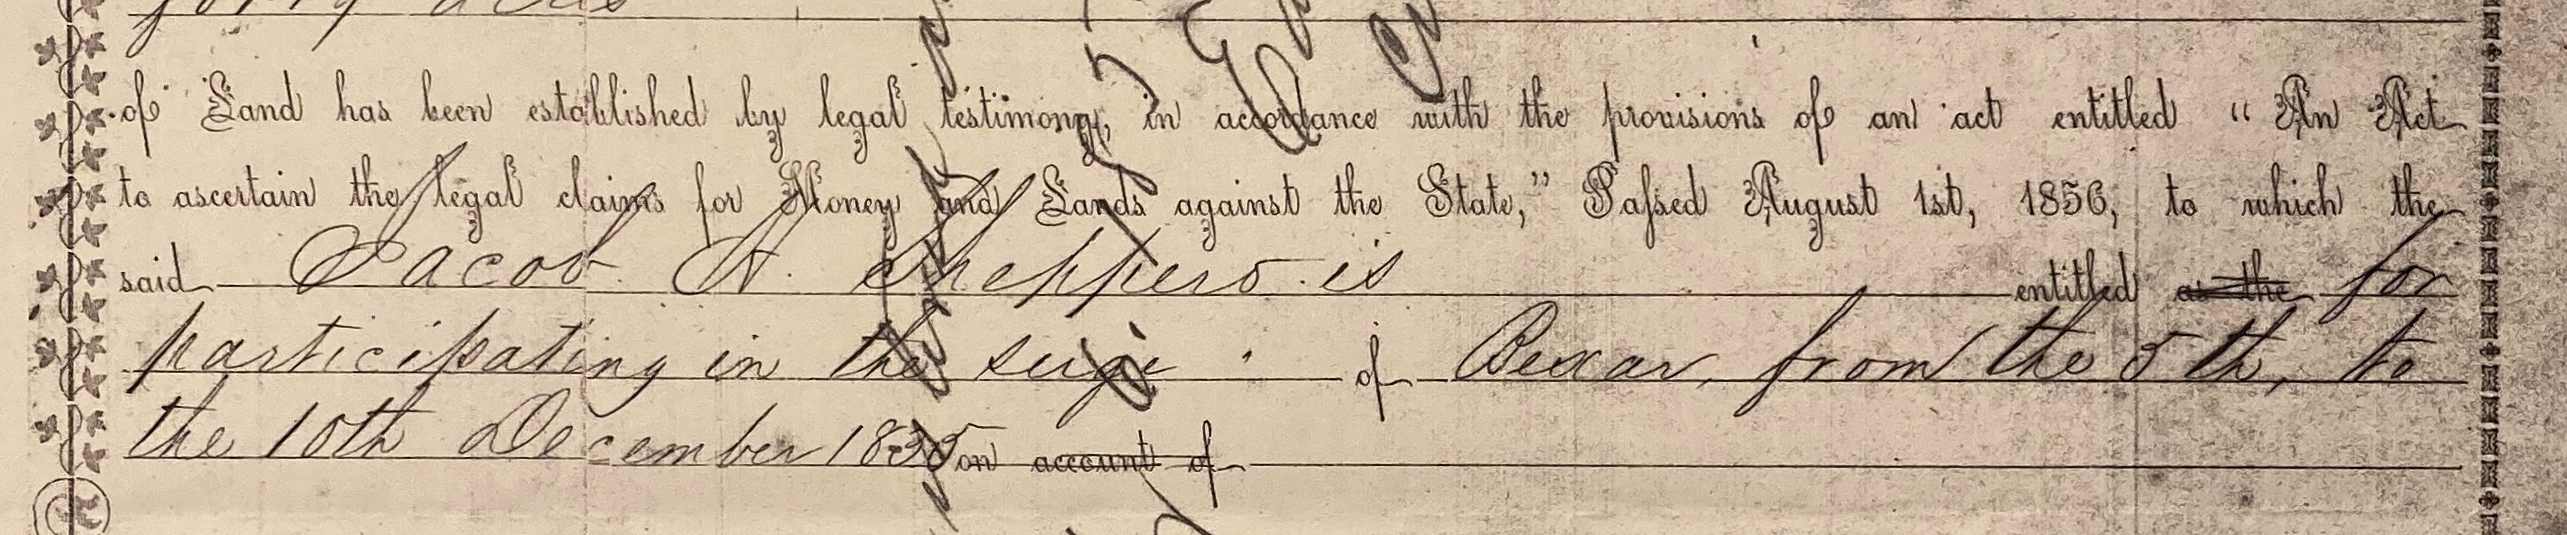 forty acres
of Land has been established by legal testimony, in accordance with the provisions of an act entitled “An Act
to ascertain the legal claims for Money and Lands against the State,” Passed August 1st, 1856, to which the
said Jacob H. Sheppero is entitled as the for
participating in the seige of Bexar, from the 5th, to
the 10th December 1835 on account of